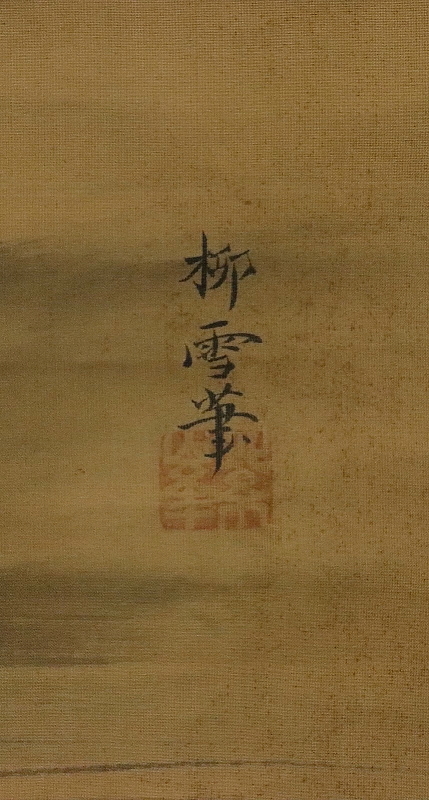 柳雪筆